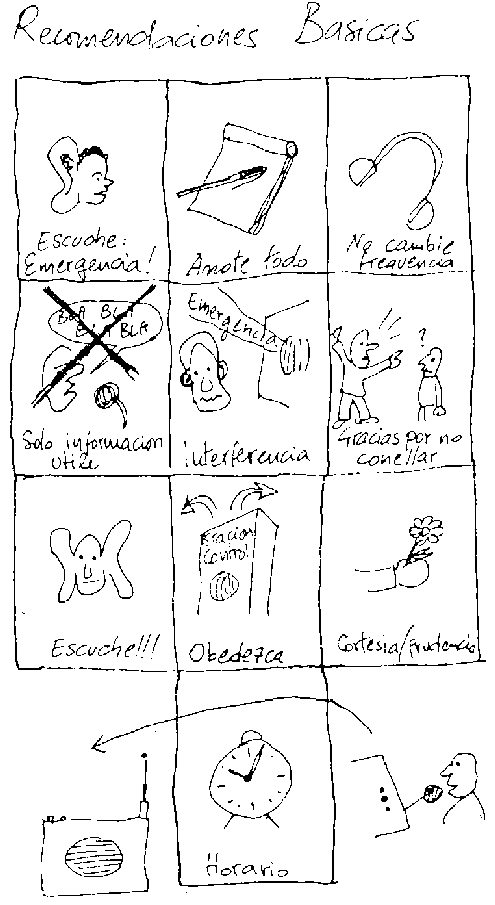 Recomendaciones Basicas
Escuche:
Emergencia!
Anote todo
No cambie
frequencia
BLA BLA
BLA BLA
Solo informacion
utile
Emergencia
interferencia
?
Gracias por no
conellar
Escuche!!!
Estacion
Control
Obedezca
Cortesia/prudencia
Horario